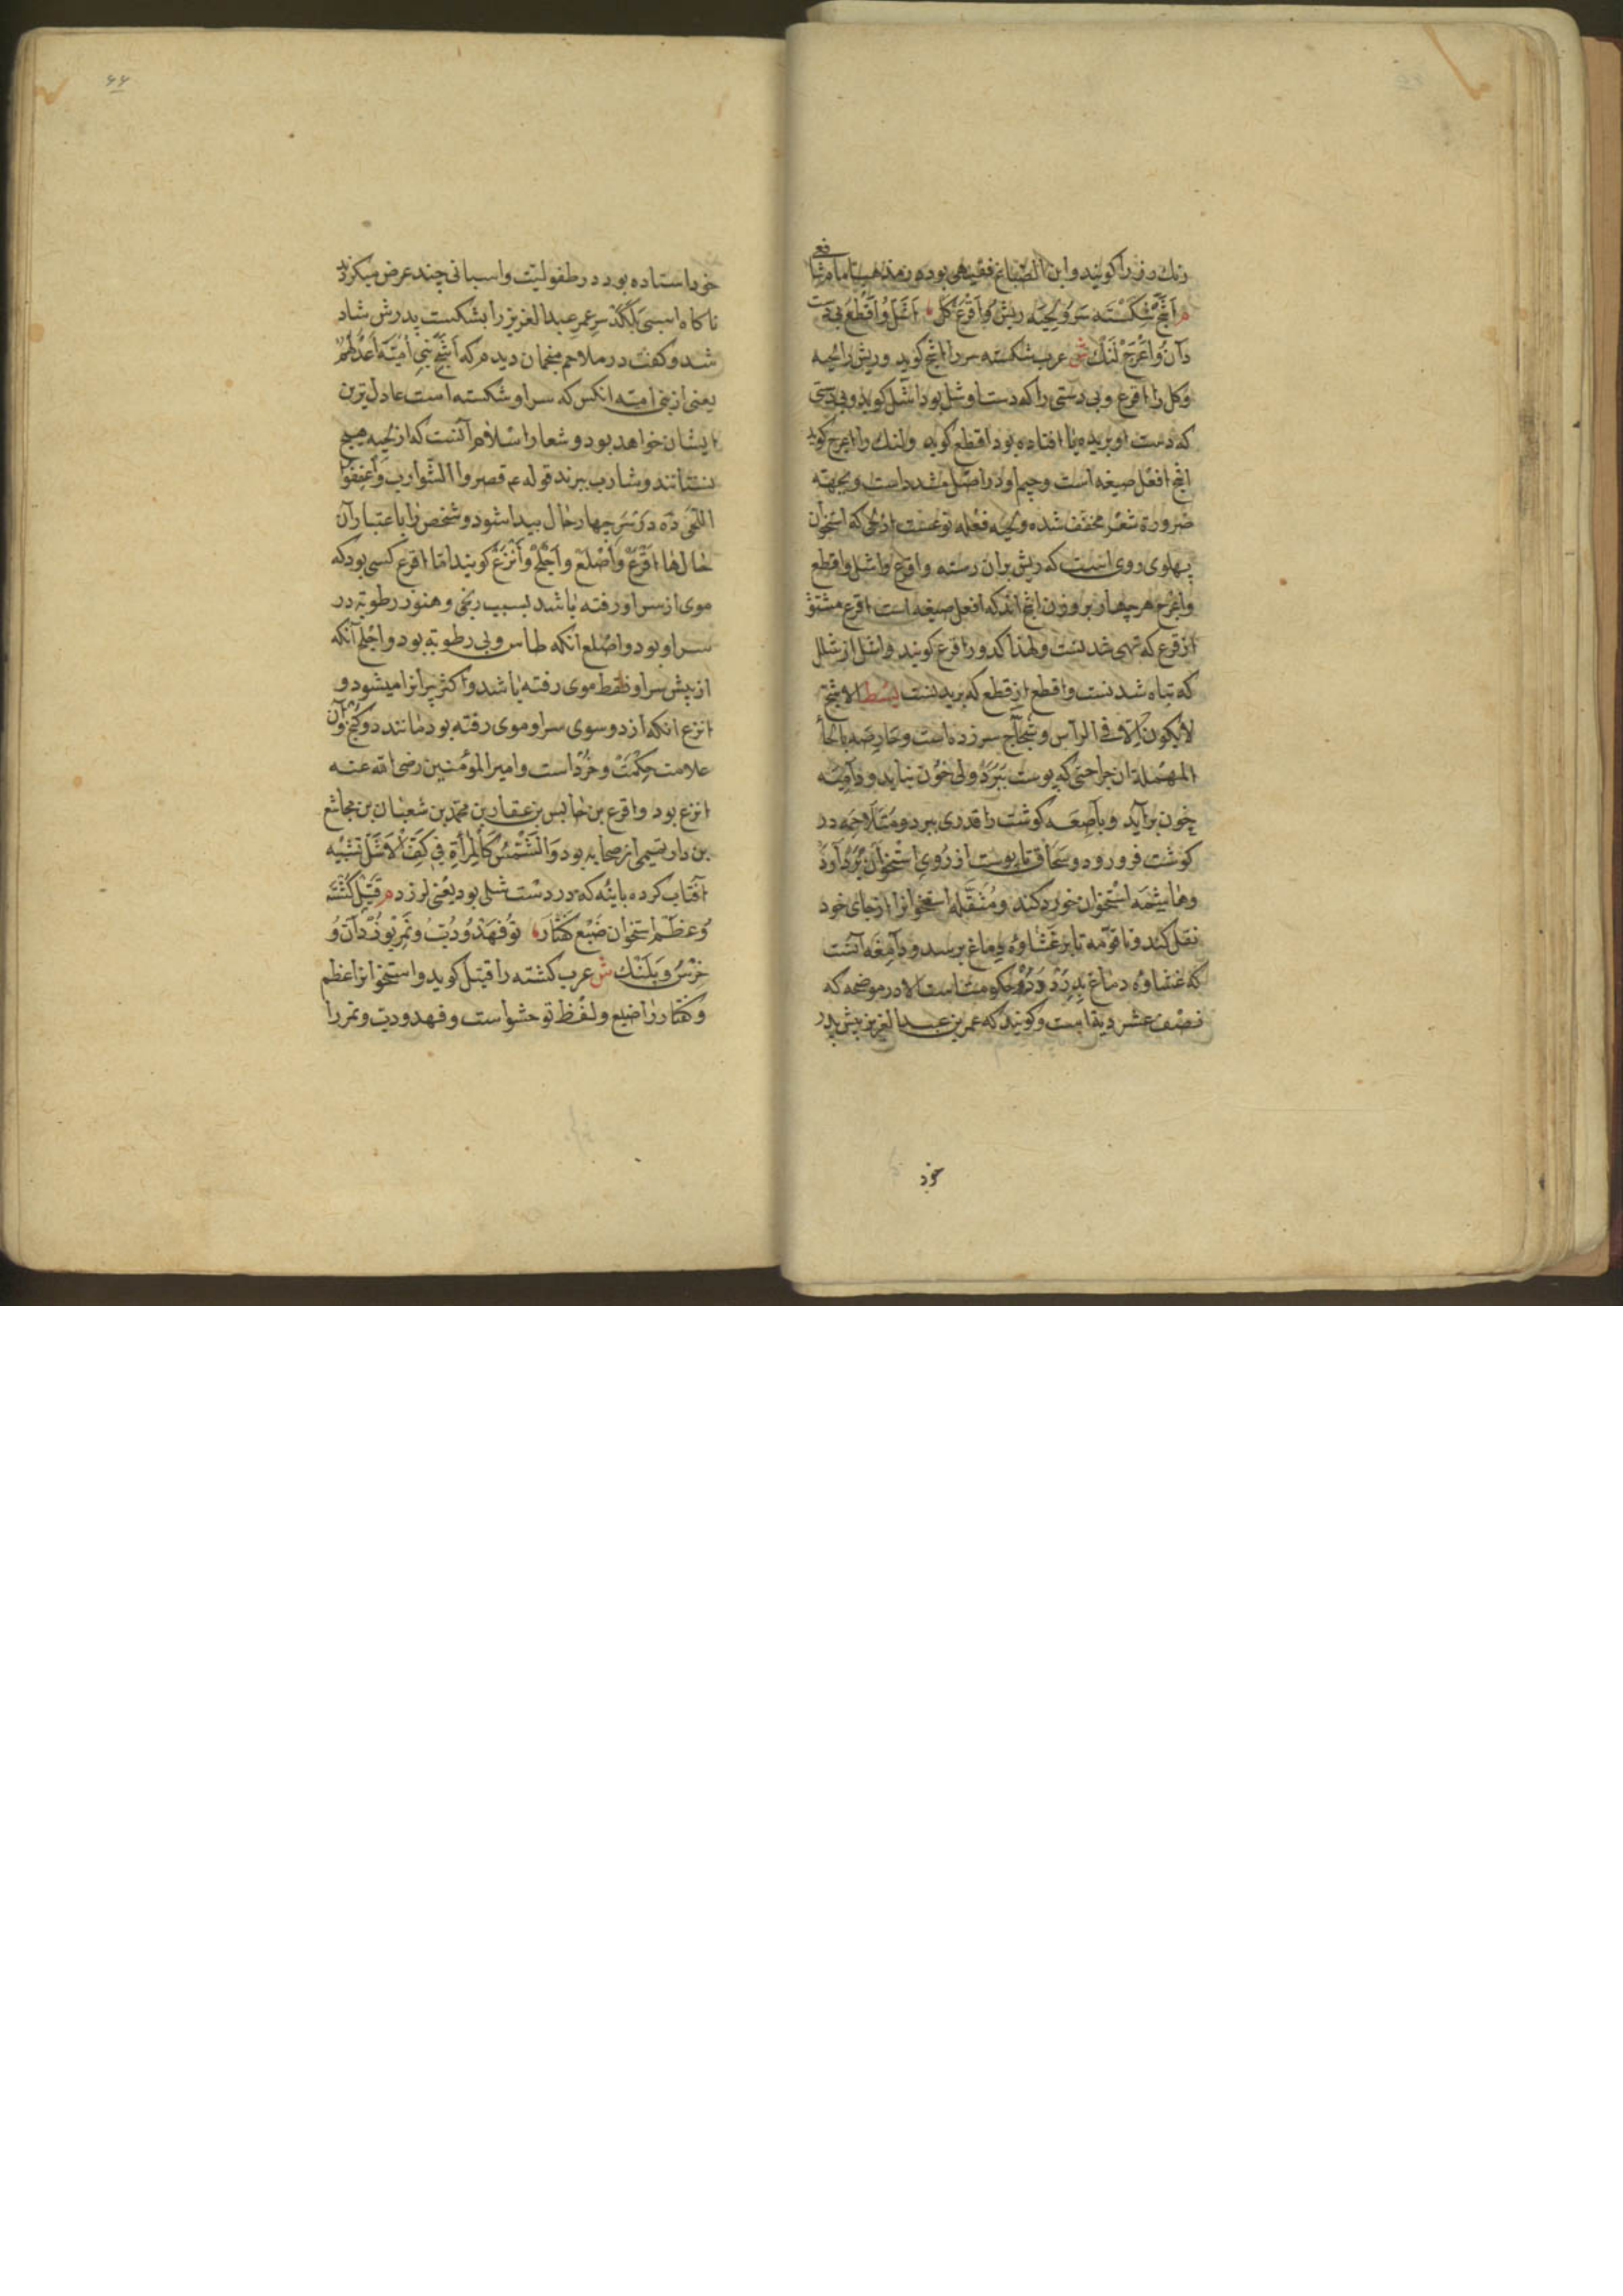 رنك رزرا كويند وابن الصّباغ فقيهى بوده در مذهب امام شافعى
م اَشَجّ شِكَسْتَه سَرُ ولِحْيَه ريش وُ اَقْرَعُ كَل اَشَلّ وُ اَقْطَعُ بى دست
دان وُ اَعْرَجْ لَنك ش عرب شكسته سر را اشج كويد وريش را لحيه
وكل را اقرع وبى دستى را كه دست او شل بود اشل كويد وبى دستى
كه دست او بريده يا افتاده بود اقطع كويد ولنك را اعرج كويد
اشج افعل صيغه است وجيم او در اصل مشدد است وبجهته
ضرورة شعر مخفف شده ولحيه فعله توعست از لحى كه استخوان
پهلوى روى است كه ريش بران رسته واقرع واشل واقطع
واعرج هر چهار بر وزن اشج اند كه افعل صيغه است اقرع مشتق
از قرع كه تهى شدنست ولهذا كدو را قرع كويند واشل از شلل
كه تباه شدنست واقطع از قطع كه بريدنست بسط الاشج
لا يكون الا فى الرأس وشجاج سر زده است وحارصه بالحاء
المهمله ان جراحتى كه پوست ببرد ولى خون نيايد ودامية
خون برآيد وباضعه كوشت را قدرى ببرد ومتلاحمه در
كوشت فرو رود وسمحاق تا پوست از روى استخوان بردارد
وهاشمه استخوان خورد كند ومنقله استخوانرا از جاى خود
نقل كند ومامومه تا بر غشاوهٔ دماغ برسد ودامغه آنست
كه غشاوهٔ دماغ بدرد ودرو حكومت است الا در موضحه كه
نصف عشر ديه است وكويند كه عمر بن عبد العزيز پيش پدر
خود
٤٤
خود استاده بود در طفوليت واسبانى چند عرض ميكردند
ناكاه اسبى بلكد سر عمر عبد العزيز را بشكست پدرش شاد
شد وكفت در ملاحم منجمان ديدم كه اَشَجّ بَنِى اُمَيَّة اَعْدَلُهُمْ
يعنى از بنى اميه انكس كه سر او شكسته است عادل ترين
ايشان خواهد بود وشعار اسلام آنست كه از لحيه هيچ
نستانند وشارب ببرند قوله ع م قصروا الشوارب وَاعْفُوا
اللحى ده در سر چهار حال پيدا شود وشخص را باعتبار آن
حال ها اقرع واصلع واجلح وانزع كويند اما اقرع كسى بود كه
موى از سر او رفته باشد بسبب رنجى وهنوز رطوبة در
سر او بود واصلع آنكه طاس وبى رطوبة بود واجلح آنكه
از پيش سر او فقط موى رفته باشد واكثر پيرانرا ميشود و
انزع آنكه از دو سوى سر او موى رفته بود مانند دو كنج وآن
علامت حكمت وخرد است وامير المؤمنين رضى الله عنه
انزع بود واقرع بن حابس بن عقار بن محمد بن شعبان بن مجاشع
بن دار تميمى از صحابه بود وَالشَّمْسُ كَالْمِرْأَةِ فِى كَفِّ الْاَشَلّ تشبيه
آفتاب كرده باينه كه در دست شلى بود يعنى لرزد م قَتِيل كُشْتَه
وُ عظم استخوان ضَبْع كَفْتَار تو فَهْد وُ دُبّ وُ نَمِر يوز دان وُ
خِرْسُ وَ پلَنْك ش عرب كشته را قتيل كويد واستخوانرا عظم
وكفتار را ضبع ولفظ تو حشو است وفهد ودب ونمر را